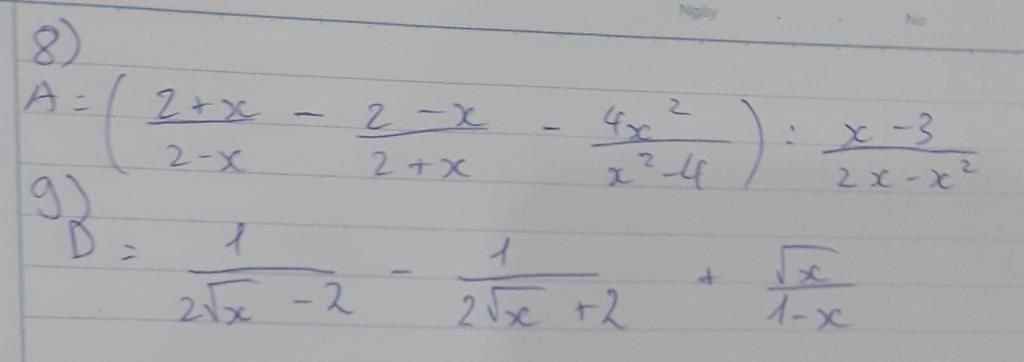 Ngày No
8)
A = ( \frac{2+x}{2-x} - \frac{2-x}{2+x} - \frac{4x^2}{x^2-4} ) : \frac{x-3}{2x-x^2}
9)
D = \frac{1}{2\sqrt{x}-2} - \frac{1}{2\sqrt{x}+2} + \frac{\sqrt{x}}{1-x}